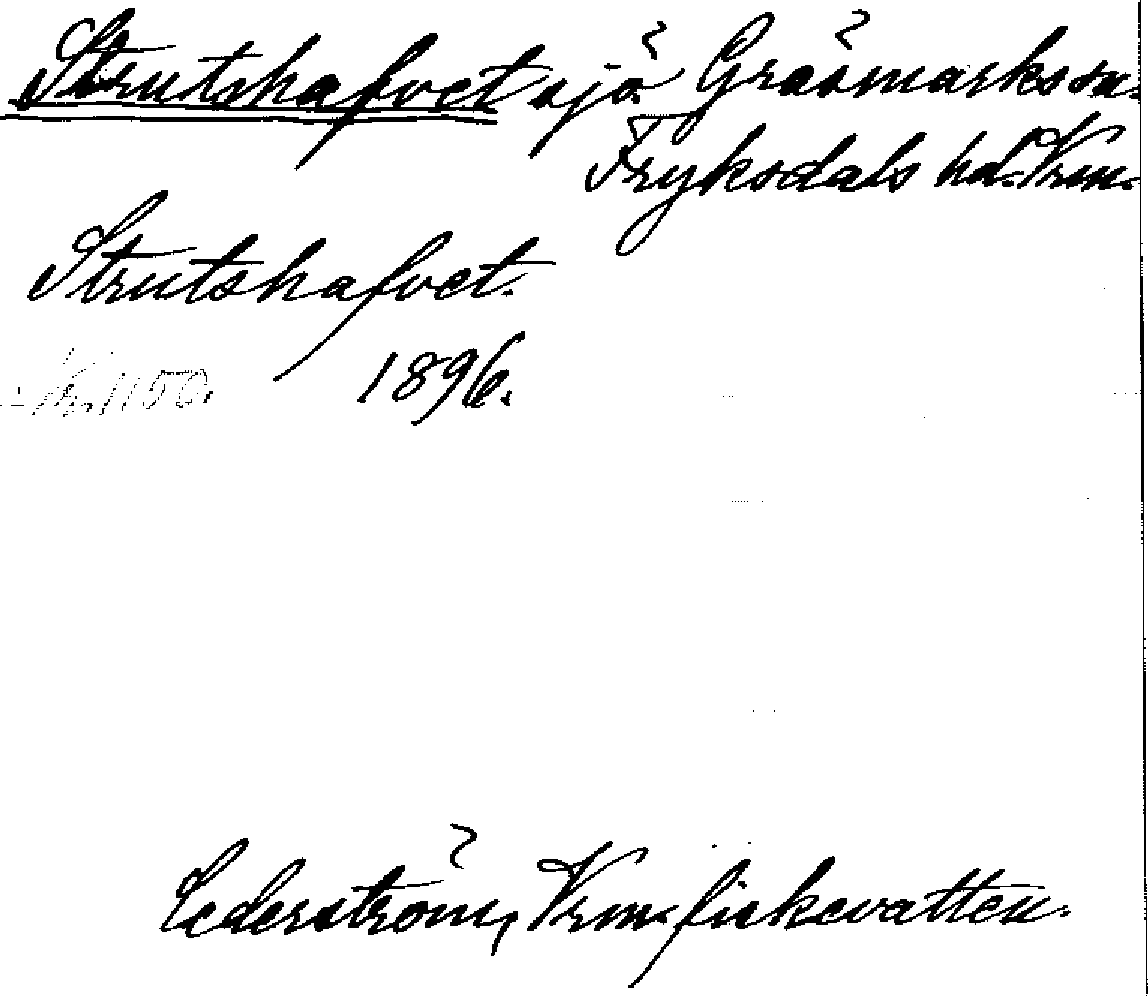 Strutshafvet sjö Gräsmarks sn.
Fryksdals hd. Vrm.
Strutshafvet.
1896.
Cederström, Vrm. fiskevatten.